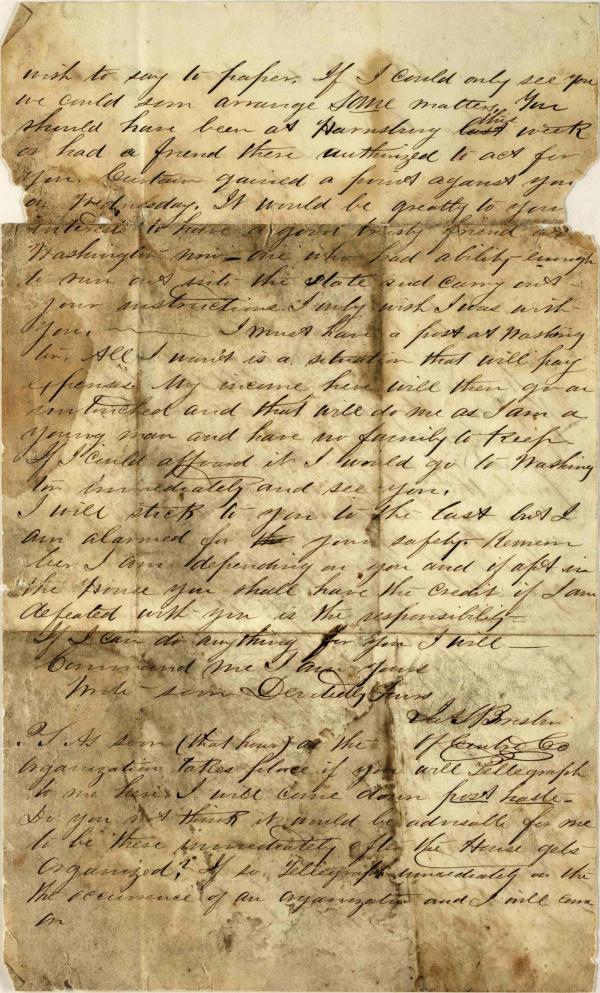 wish to say to paper. If I could only see you
we could soon arrange some matters. You
should have been at Harrisburg last week
or had a friend there authorized to act for
you. Curtain gained a point against you
on Wednesday. It would be greatly to your
interest to have a good trusty friend at
Washington now – one who had ability enough
to run out into the state and carry out
your instructions. I only wish I was with
you. I must have a post at Washing
ton. All I want is a situation that will pay
expenses. My income here will then go on
untouched and that will do me as I am a
young man and have no family to keep
If I could affoard it I would go to Washing
ton immediately and see you.
I will stick to you to the last but I
am alarmed for your safety. Remem
ber I am depending on you and if apt in
the House you shall have the credit if I am
defeated with you is the responsibility –
If I can do anything for you I will –
Command me I am yours
Write soon Yours
Of Centre Co
P.S. As soon (that hour) as the
organization takes place if you will Tellegraph
to me here I will come down post haste –
Do you not think it would be advisable for me
to be there immediately after the House gets
organized? If so Tellegraph immediately on the
the occurrence of an organization and I will come
on